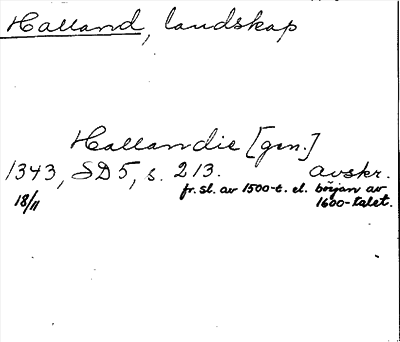 Halland, landskap
Hallandie [gen.]
1343, SD 5, s. 213. avskr.
18/11 fr. sl. av 1500-t. el. början av
1600-talet.